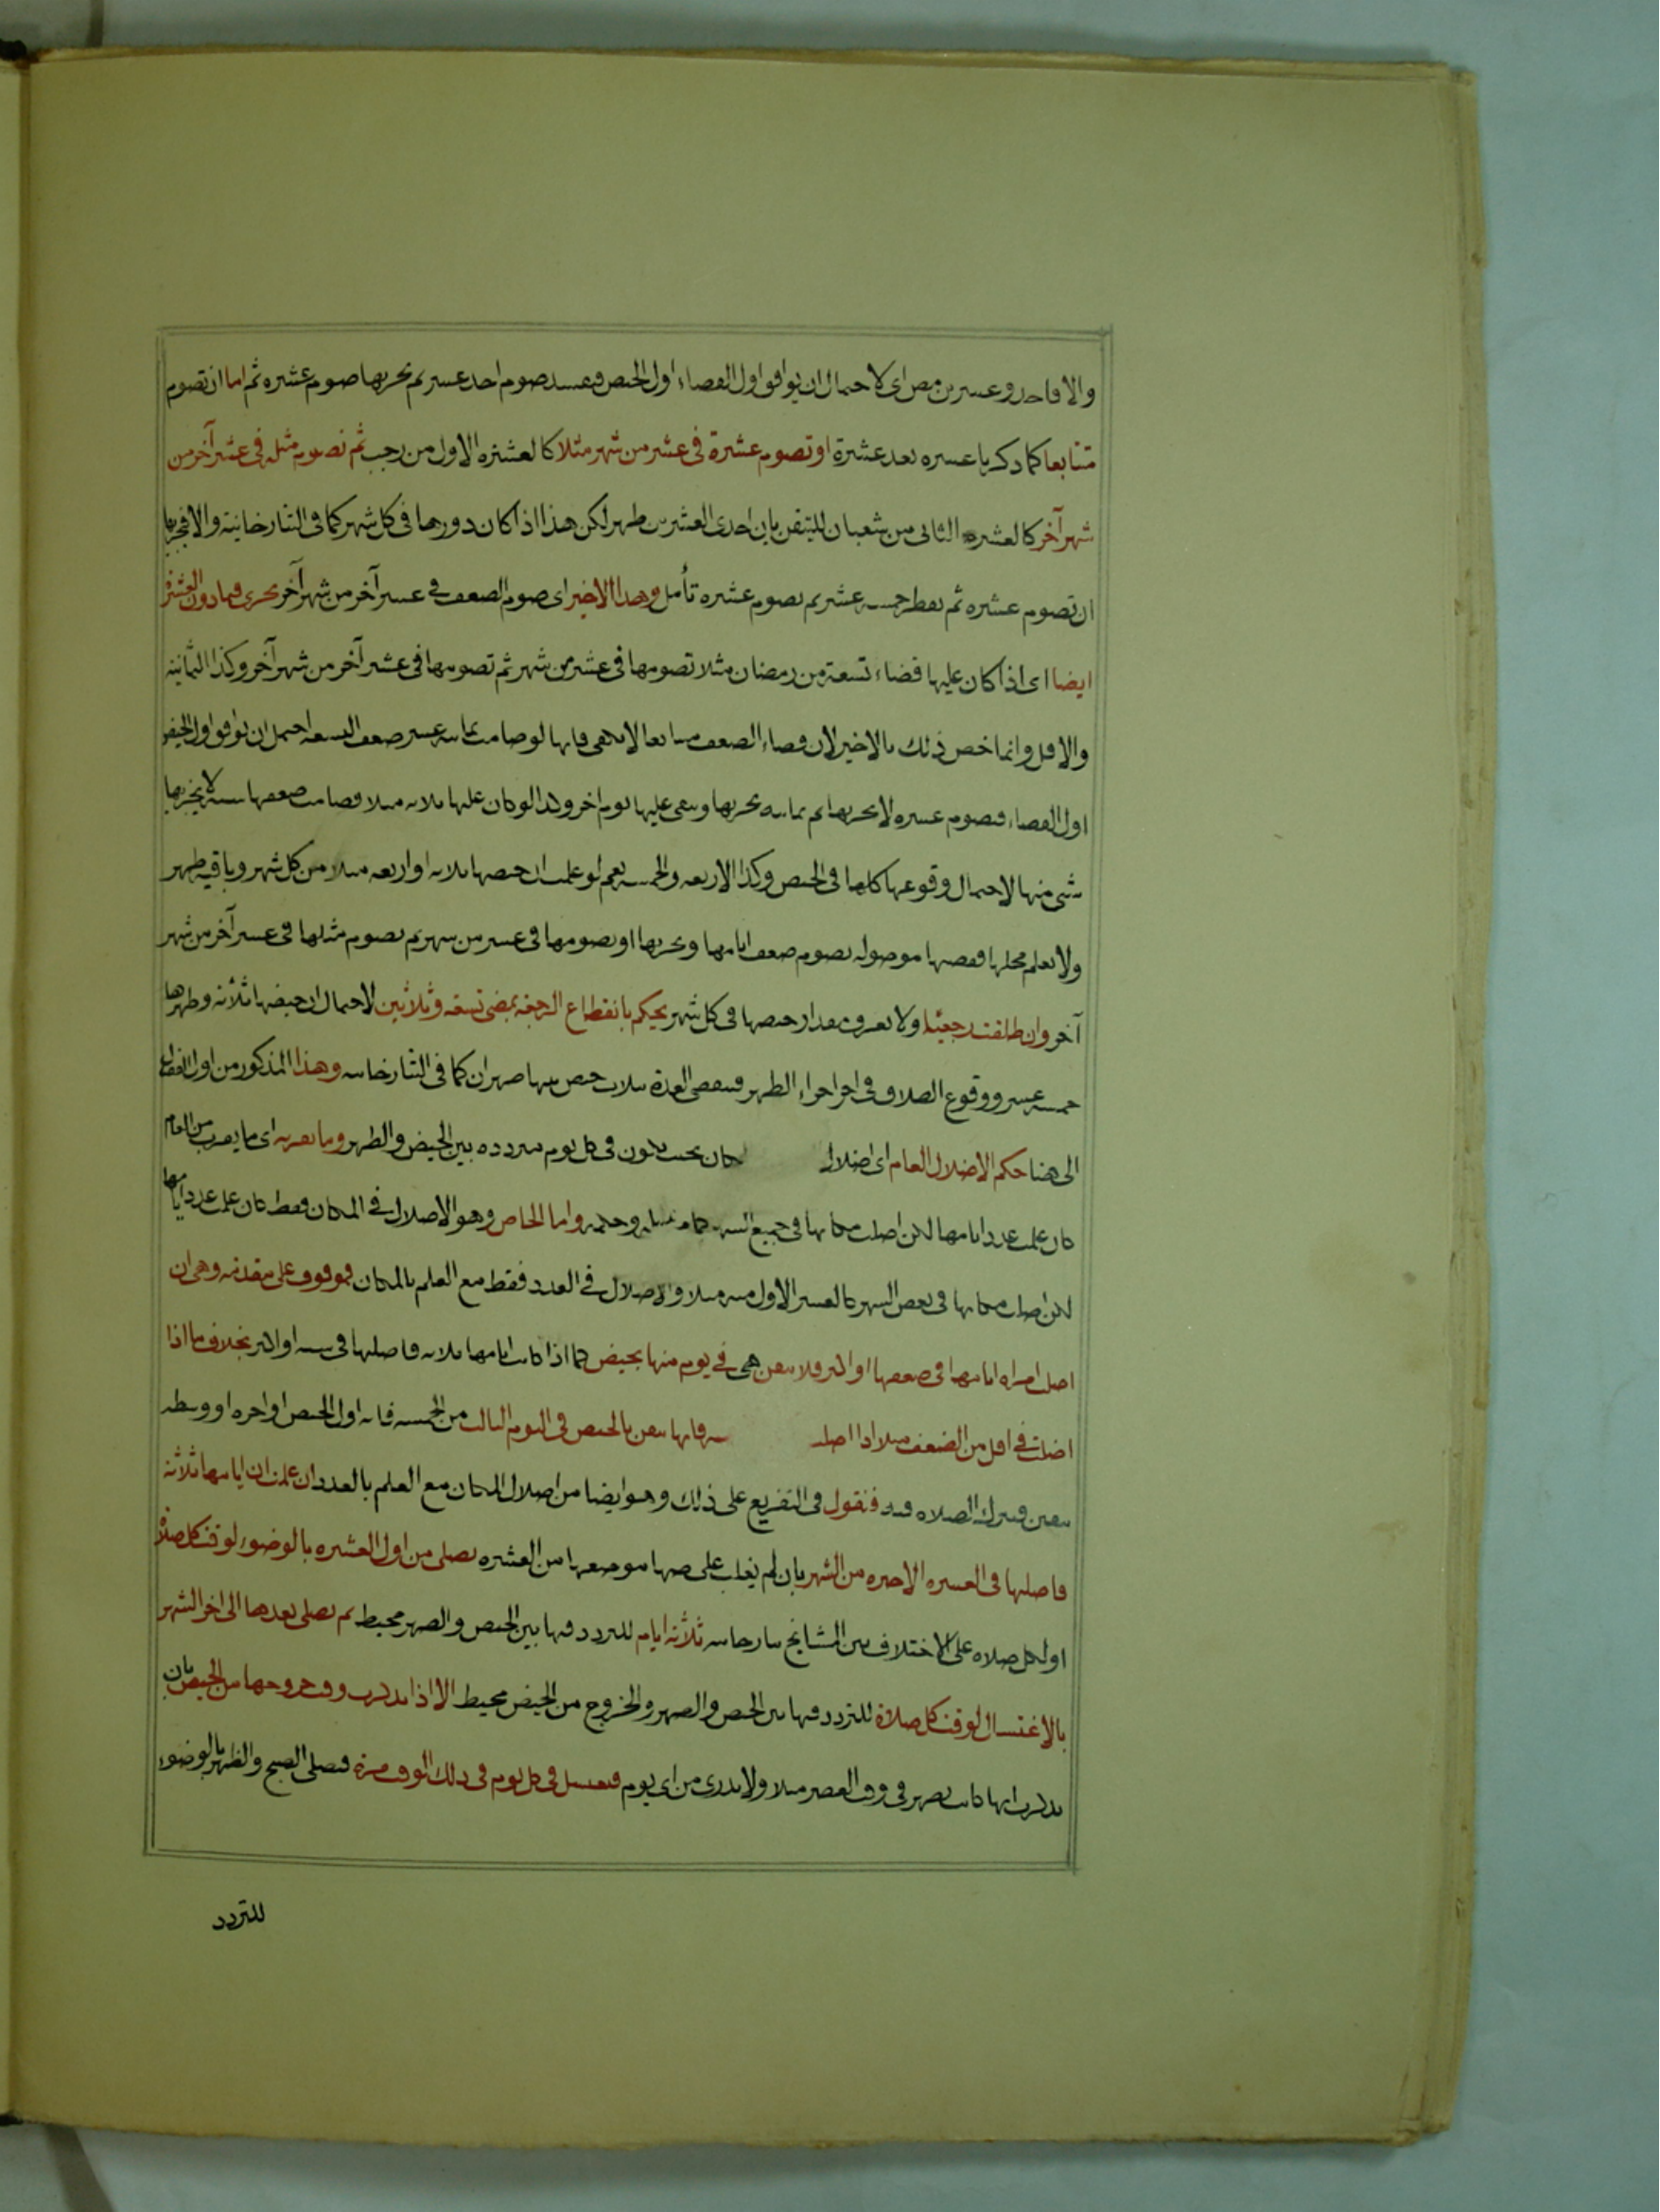 والا فاحد وعشرين مضى اى لاحتمال ان يوافق اول القضاء اول الحيض فيفسد صوم احد عشر ثم يجزيها صوم عشرة ثم اما ان تصوم
متتابعا كما ذكرنا عشرة بعد عشرة او تصوم عشرة فى عشر من شهر مثلا كالعشرة الاول من رجب ثم تصوم مثله فى عشر آخر من
شهر آخر كالعشرة الثانى من شعبان للتيقن بان احدى العشرين طهر لكن هذا اذا كان دورها فى كل شهر كما فى التتارخانية والا فيجزيها
ان تصوم عشرة ثم يفطر خمسة عشر ثم يصوم عشرة تأمل وهذا الاخير اى صوم الضعف فى عشر آخر من شهر آخر يجرى فيما دون العشرة
ايضا اى اذا كان عليها قضاء تسعة من رمضان مثلا تصومها فى عشر من شهر ثم تصومها فى عشر آخر من شهر آخر وكذا الثمانية
والاقل وانما خص ذلك بالاخير لان قضاء الضعف متتابعا لا يكفى فانها لو صامت ثمانية عشر ضعف التسعة احتمل ان يوافق اول الحيض
اول القضاء فيصوم عشرة لا يجزيها ثم ثمانية يجزيها وبقى عليها يوم اخر وكذا لو كان عليها ثلاثة مثلا فصامت ضعفها ستة لا يجزيها
شى منها لاحتمال وقوعها كلها فى الحيض وكذا الاربعة والخمسة نعم لو علمت ان حيضها ثلاثة او اربعة مثلا من كل شهر وباقيه طهر
ولا يعلم محلها فقضها موصولة يصوم ضعف ايامها ويجزيها او يصومها فى عشر من شهر ثم يصوم مثلها فى عشر آخر من شهر
آخر وان طلقت رجعيا ولا يعرف مقدار حيضها فى كل شهر يحكم بانقطاع الرجعة بمضى تسعة وثلاثين لاحتمال ان حيضها ثلاثة وطهرها
خمسة عشر ووقوع الطلاق فى اخر اجزاء الطهر فتنقضى العدة بثلاث حيض بينها طهران كما فى التتارخانية وهذا المذكور من اول الفصل
الى هنا حكم الاضلال العام اى اضلال كان بحيث يكون فى كل يوم مترددة بين الحيض والطهر وما يقربه اى ما يقرب من العام
كان علمت عدد ايامها لكن اضلت مكانها فى جميع الشهر وحكمه واما الخاص وهو الاضلال فى المكان فقط كان علمت عدد ايامها
لكن اضلت مكانها فى بعض الشهر كالعشر الاول منه مثلا والاضلال فى العدد فقط مع العلم بالمكان فموقوف على مقدمة وهى ان
اضلت امراة ايامها فى ضعفها او اكثر فلا تيقن هى فى يوم منها بحيض كما اذا كانت ايامها ثلاثة فاضلتها فى ستة او اكثر بخلاف ما اذا
اضلت فى اقل من الضعف مثلا اذا اضلت فانها تيقن بالحيض فى اليوم الثالث من الخمسة فانه اول الحيض او اخره او وسطه
بيقين فيترك الصلاة فيه فنقول فى التفريع على ذلك وهو ايضا من اضلال المكان مع العلم بالعدد ان علمت ان ايامها ثلاثة
فاضلتها فى العشرة الاخيرة من الشهر بان لم يغلب على ظنها موضعها من العشرة يصلى من اول العشرة بالوضوء لوقت كل صلاة
او لكل صلاة على الاختلاف بين المشايخ تتارخانية ثلاثة ايام للتردد فيها بين الحيض والطهر محيط ثم يصلى بعدها الى اخر الشهر
بالاغتسال لوقت كل صلاة للتردد فيها بين الحيض والطهر والخروج من الحيض محيط الا اذا تذكرت وقت خروجها من الحيض بان
تذكرت انها كانت يطهر فى وقت العصر مثلا ولا يدرى من اى يوم فيغتسل فى كل يوم فى ذلك الوقت مرة فيصلى الصبح والظهر بالوضوء
للتردد